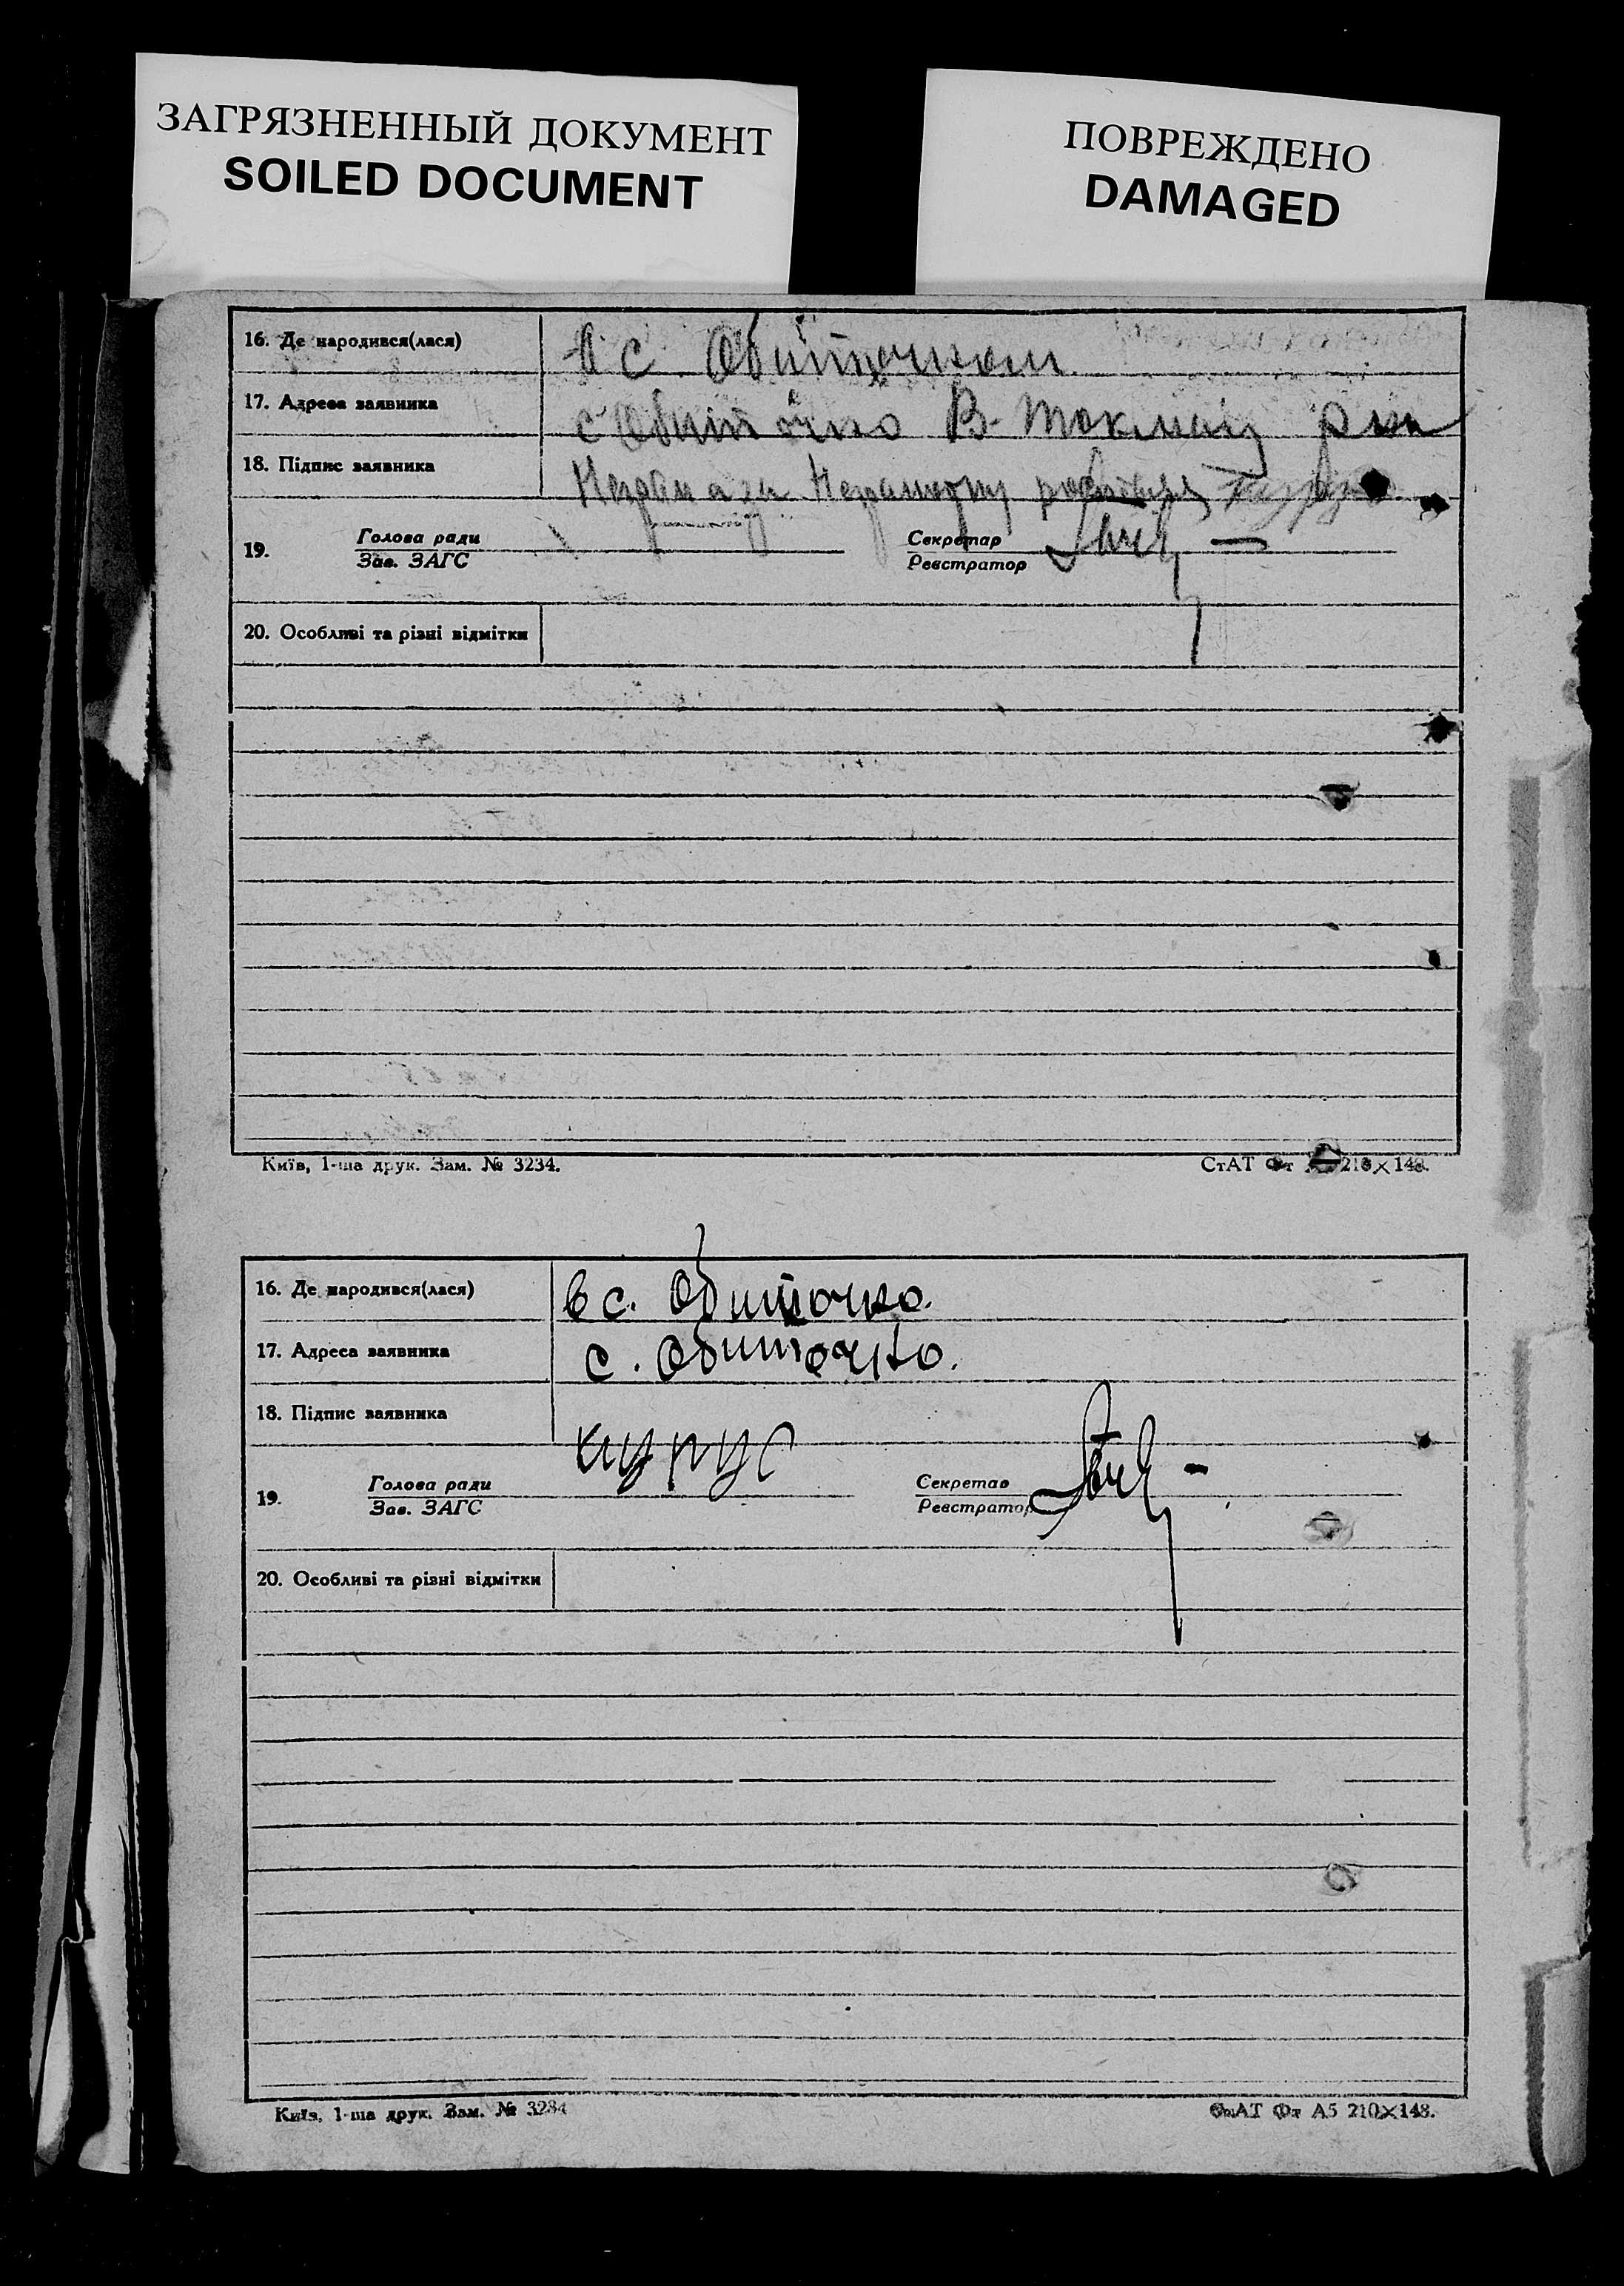 ЗАГРЯЗНЕННЫЙ ДОКУМЕНТ
SOILED DOCUMENT
ПОВРЕЖДЕНО
DAMAGED
16. Де народився(лася) в с Обиточном
17. Адреса заявника с Обиточно В-Токмац р-на
18. Підпис заявника
19. Голова ради
Зав. ЗАГС
Секретар
Реєстратор
20. Особливі та різні відмітки
Київ, 1-ша друк. Зам. № 3234.
СтАТ Фт 210×148.
16. Де народився(лася) в с. Обиточно.
17. Адреса заявника с. Обиточно.
18. Підпис заявника
19. Голова ради
Зав. ЗАГС
Секретар
Реєстратор
20. Особливі та різні відмітки
Київ, 1-ша друк. Зам. № 3234
СтАТ Фт А5 210×148.